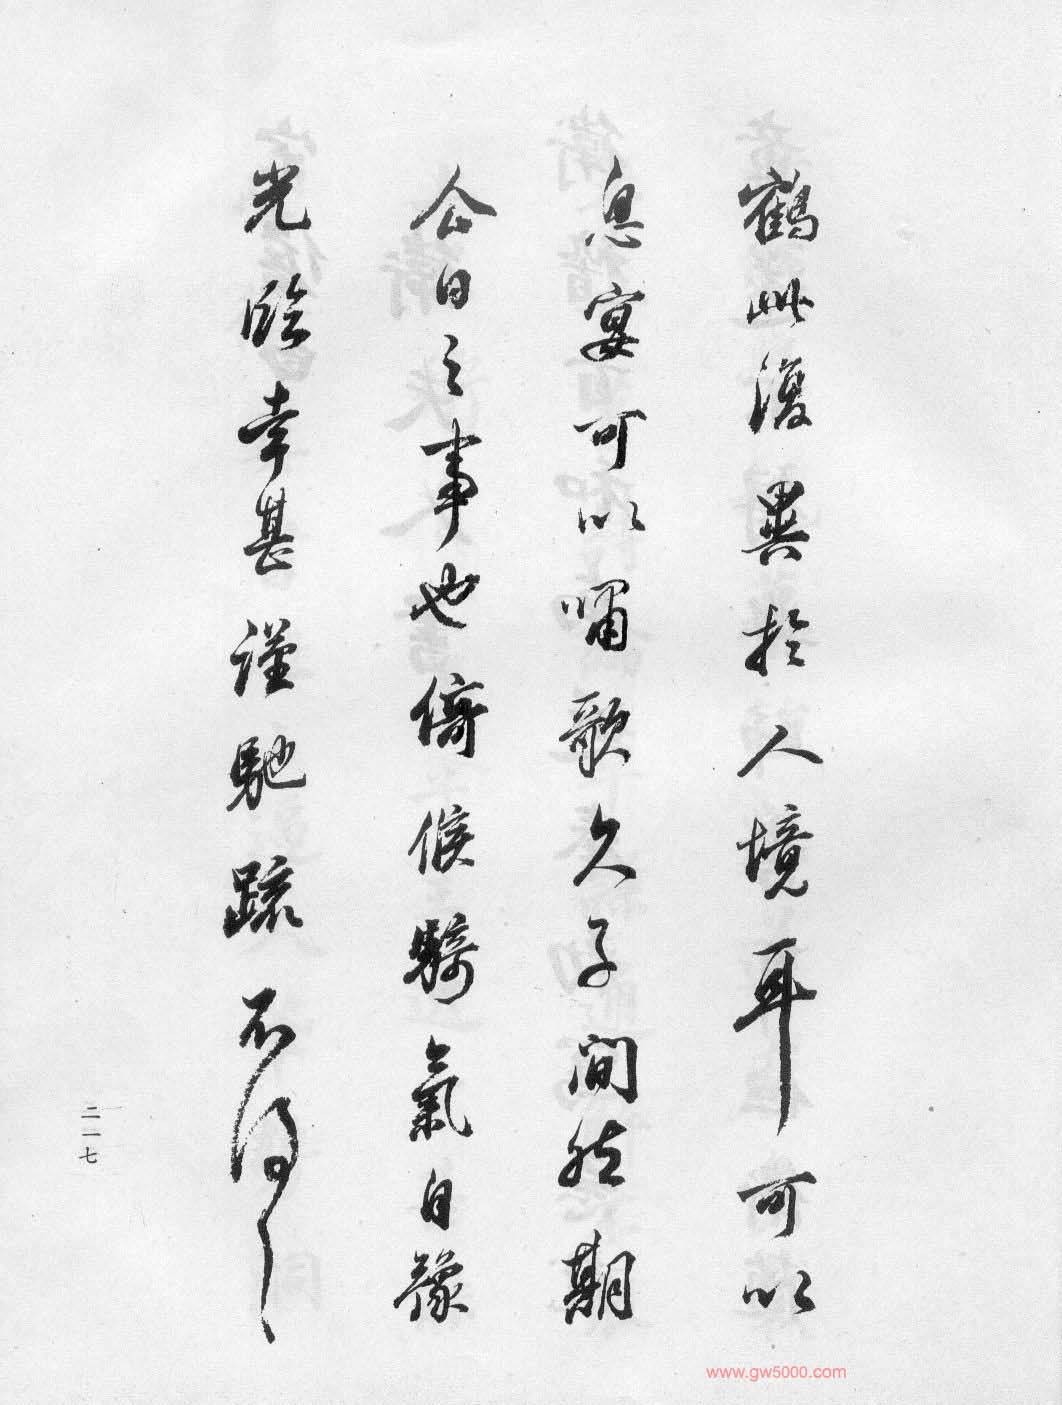 鶴此復異於人境耳可以
息宴可以嘯歌久子間然期
今日之事也倚候騎氣自豫
光臨幸甚謹馳疏不
二一七
www.gw5000.com